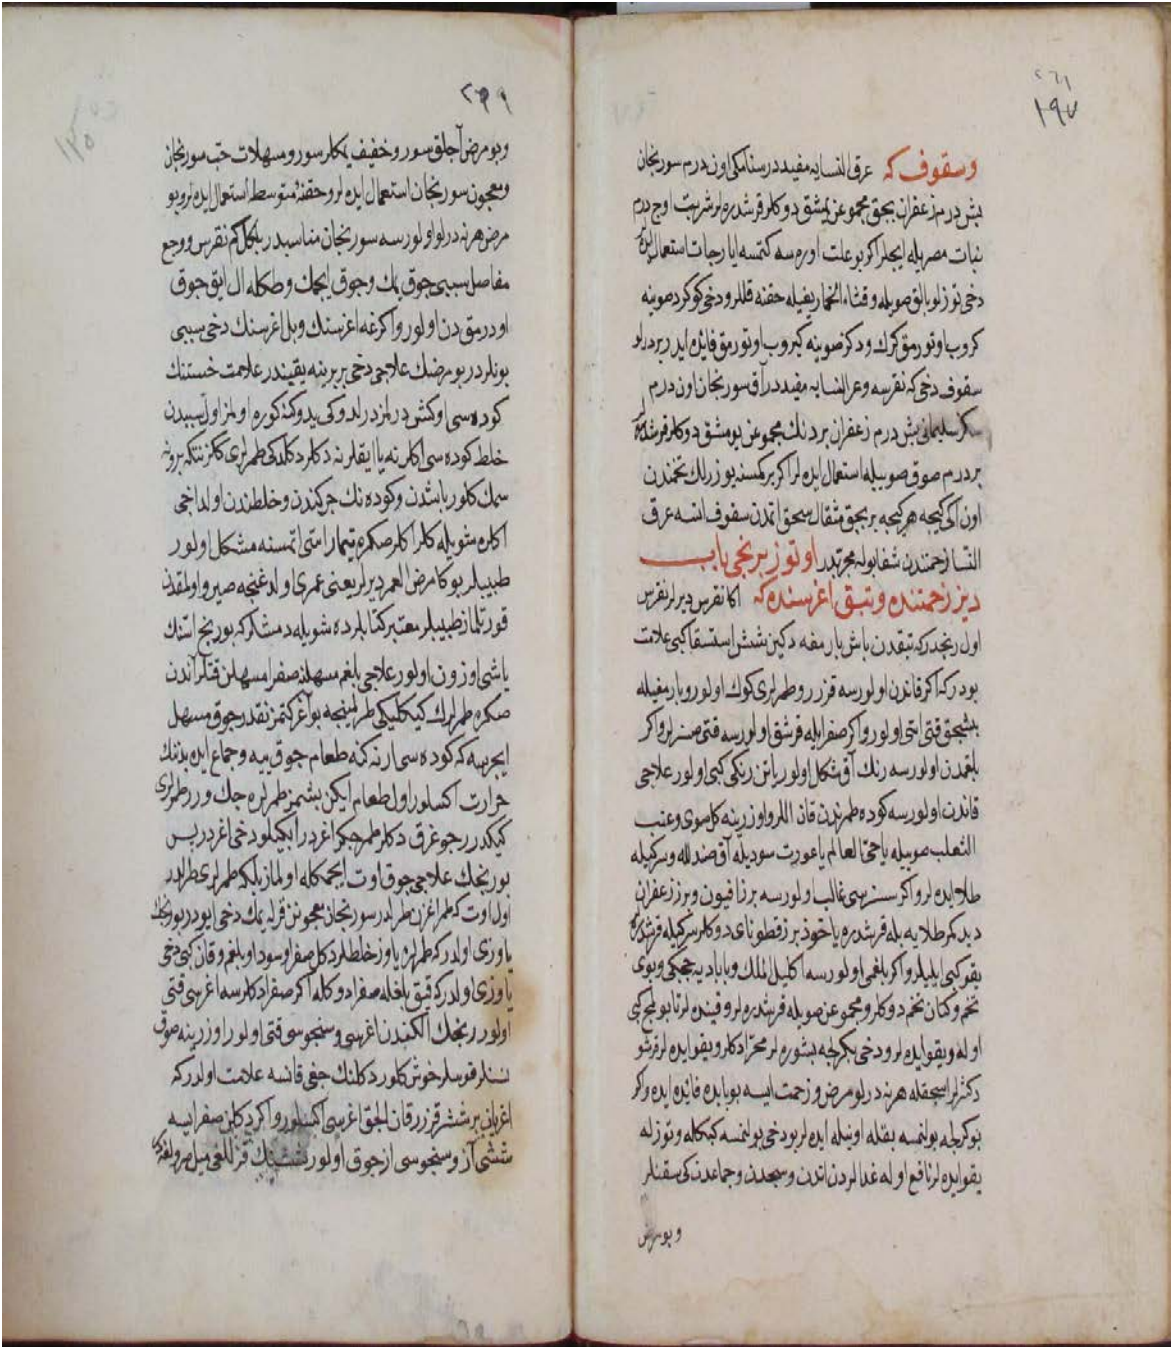 ٢٦١
١٩٧
وسفوف که عرق النسایه مفیددر سنامکی اون درم سورنجان
بش درم زعفران بچق مجموعن یمشق دوکلر قرشدره لر شربت اوچ درم
نبات مصریله ایچلر اکر بو علت اوره سه کتمسه ایارجات استعمال ایده
دخی توزلو بالق صویله وقثاء الحمار یغیله حقنه قللر ودخی کوکرد صوینه
کروب اوتورمق کرك ودکز صوینه کیروب اوتورمق فایده ایدر بردرلو
سفوف دخی که نقرسه وعرق النسایه مفیددر آق سورنجان اون درم
سکر سلیمانی بش درم زعفران بردنك مجموعن یومشق دوکلر قرشدره
بردرم صوق صویبله استعمال ایده لر اکر برکمسنه یوزرلك تخمندن
اون ایکی کیجه هر کیجه بربچق مثقال سحق اتمدن سفوف اتسه عرق
النسا زحمتندن شفا بوله مجربدر اوتوز برنجی باب
دیز زحمتنده وتبق اغرسنده که اکا نقرس دیرلر نقرس
اول رنجدرکه تبقدن باش بارمغه دکین ششر استسقا کبی علامت
بودرکه اکر قاندن اولورسه قزرر وطمرلری کوك اولور وبارمغیله
بصیجق قتی اتی اولور واکر صفرایله قرشق اولورسه قتی صنزلر واکر
بلغمدن اولورسه رنك آق شکل اولور یاتن رنکی کبی اولور علاجی
قاندن اولورسه کوده طمرندن قان اللر واوزرینه کل صوی وعنب
الثعلب صویبله یا حی العالم یا عورت سودیله آق صندلله وسرکیله
طلا ایده لر واکر سسزهسی غالب اولورسه برز افیون وبرز زعفران
دیدکمز طلایه بله قرشدره یاخوذ بزرقطونای دوکلر سرکیله قرشدره
یقو کبی ایلیلر واکر بلغمی اولورسه اکلیل الملك وبابادیه چچکی وبوی
تخم وکتان تخم دوکلر ومجموعن صویله قرشدره لر وقیندلر تا بولمج کبی
اوله ویقو ایده لر ودخی بکرلجه بشوره لر محرا دکلر ویقو ایده لر قرشو
دکثرلر اسیجقله هر نه درلو مرض وزحمت ایسه بو بابده فائده ایده واکر
بوکرلجه بولنمسه بقله اونیله ایده لر بو دخی بولنمسه کپکله وتوزله
یقو ایده لر نافع اوله غدالردن اتدن وسجدن وجماعدن کی سقنلر
وبو مرض
٢٦١
وبو مرض آجلق سور وخفیف یمکلر سور ومسهلات حب سورنجان
ومعجون سورنجان استعمال ایده لر وحقنهٔ متوسط استعمال ایده لر وبو
مرض هر نه درلو اولورسه سورنجان مناسبدر بلکل کم نقرس ووجع
مفاصل سببی چوق یمك وچوق ایچمك وطکله ال ایق چوق
اودرمق دن اولور واکرغه اغرسنك وبل اغرسنك دخی سببی
بونلردر بو مرضك علاجی دخی بر برینه یقیندر علامت خستنك
کوده سی اوکش درلمزدرلدوکی یدوکنه کوره اولمز اول سببدن
خلط کوده سی اکلرنه یا ایقلرنه دکلر دکلدکی طمرلری کلرنتکه برونه
سمك کلور باشدن وکوده نك چرکندن وخلطندن اولداجی
اکلره شویله کلر اکلر صکره تیمار امتی اتمسنه مشکل اولور
طبیبلر بوکا مرض العمر دیرلر یعنی عمری اولدغنجه صیرو اولمقدن
قورتلماز طبیبلر معتبر کتابلرده شویله دمشلرکه بو رنج استنك
باشی اوزون اولور علاجی بلغم مسهلنه صفرا مسهلن قتلر آندن
صکره طمرلرك کیکلیکی طرلمینجه بو آغر کتمز نقدر چوق مسهل
ایچرسه که کوده سی ارنه کنه طعام چوق ییه وجماع ایده بدنك
حرارت اکسلور اول طعام ایکن بشمز طمرلره چك ورر طمرلری
کیکدرر جو غرق دکلر طمر چکر اغردر ایکیلو دخی اغردر بس
بو رنجك علاجی چوق اوت ایچمکله اولماز بلکه طمرلری طرلدر
اول اوت که طمر اغزن طرلدر سورنجان معجونن قرله یمك دخی ایودر بو رنجك
یاوزی اولدرکه طمرلره یاوز خلطلر دکل صفرا وسودا وبلغم وقان کبی دخی
یاوزی اولدرکه قیق بلغله صفرا دوکله اکر صفرا دکلرسه اغرسی قتی
اولور رنجك الکندن اغرسی وسنجوسی قتی اولور اوزرینه صوق
نسنلر قوسلر خوش کلور دکلنك چغی قانسه علامت اولدرکه
اغریان بر ششر قزرر قان الجق اغرسی اکسلور واکر دکلن صفرا ایسه
ششی آز وسنجوسی از چوق اولور ششنك قزللغی میل صرولغه